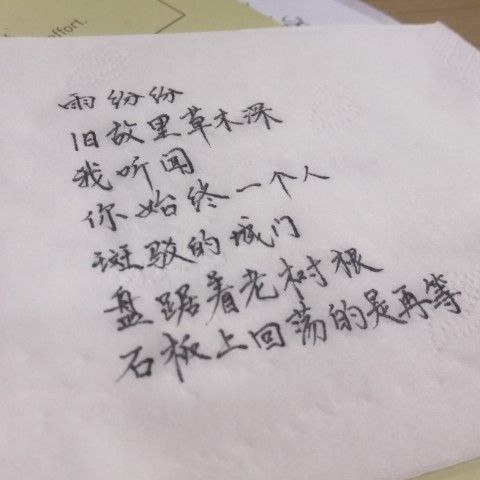 effort.
雨纷纷
旧故里草木深
我听闻
你始终一个人
斑驳的城门
盘踞着老树根
石板上回荡的是再等